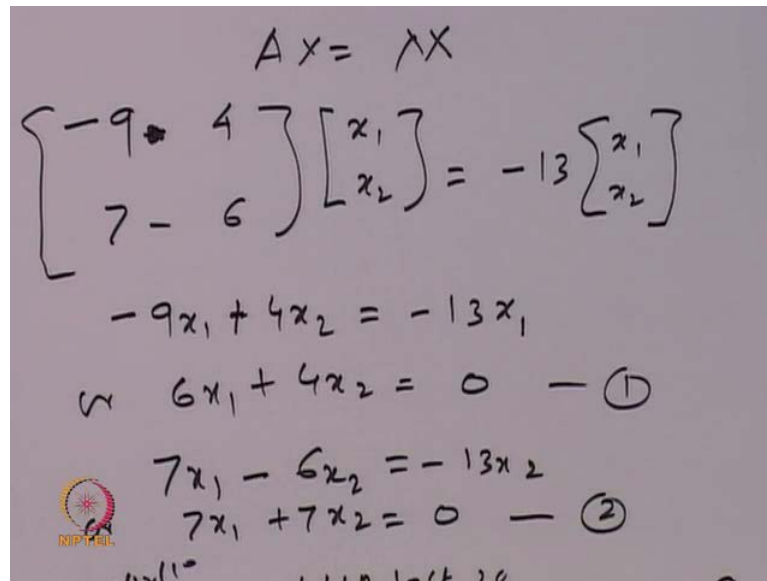 AX = λX
[-9 4
7 - 6] [x₁
x₂] = -13 [x₁
x₂]
-9x₁ + 4x₂ = -13x₁
or 6x₁ + 4x₂ = 0 — ①
7x₁ - 6x₂ = -13x₂
or 7x₁ + 7x₂ = 0 — ②
NPTEL